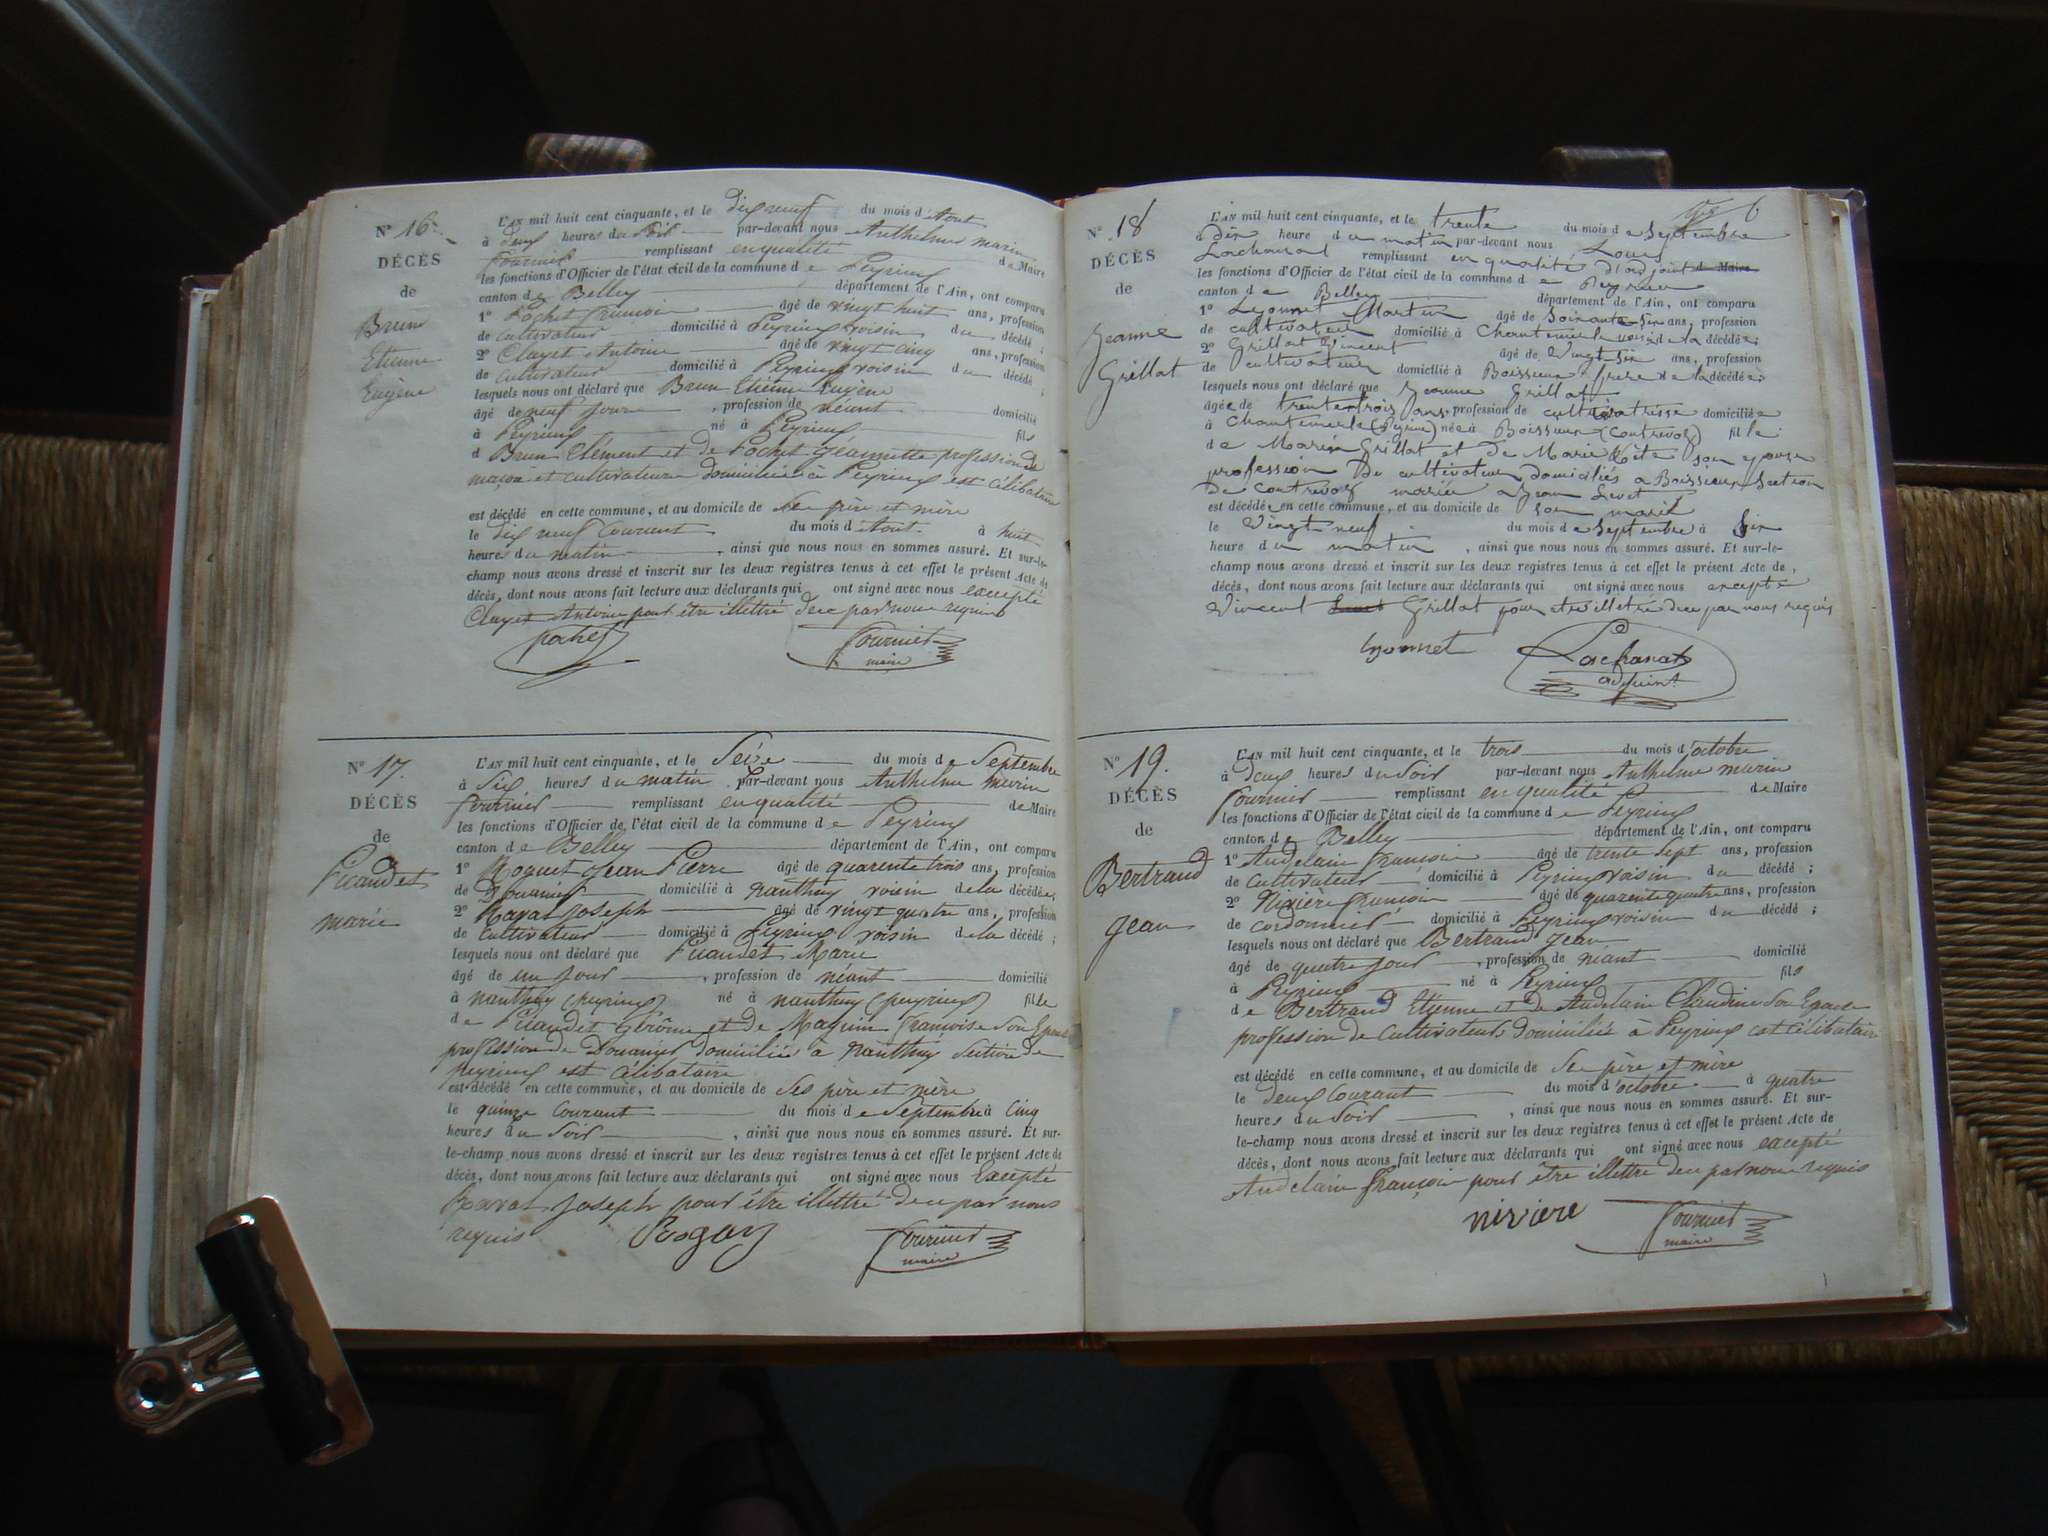 N° 16.
DÉCÈS
de
Brun
Etienne
Eugène
L'AN mil huit cent cinquante, et le Dix neuf du mois d'Aout
à deux heures du soir par-devant nous Anthelme marin
Fournier remplissant en qualité de Maire
les fonctions d'Officier de l'état civil de la commune de Peyrieux
canton de Belley département de l'Ain, ont comparu
1° Pochet françois âgé de vingt huit ans, profession
de cultivateur domicilié à Peyrieux voisin du décédé ;
2° Clayet Antoine âgé de vingt cinq ans, profession
de cultivateur domicilié à Peyrieux voisin du décédé ;
lesquels nous ont déclaré que Brun Etienne Eugène
âgé de neuf jour , profession de néant domicilié
à Peyrieux né à Peyrieux fils
d Brun Clément et de Pochet Jeannette profession de
maçon et cultivateur domiciliés à Peyrieux est célibataire
est décédé en cette commune, et au domicile de ses père et mère
le dix neuf courant du mois d'Aout à huit
heures du matin , ainsi que nous nous en sommes assuré. Et sur-le-
champ nous avons dressé et inscrit sur les deux registres tenus à cet effet le présent Acte de
décès, dont nous avons fait lecture aux déclarants qui ont signé avec nous excepté
Clayet Antoine pour être illettré de ce par nous requis
pochet Fournier
maire
N° 17.
DÉCÈS
de
Picaudet
marie
L'AN mil huit cent cinquante, et le Seize du mois de Septembre
à Six heures du matin par-devant nous Anthelme marin
Fournier remplissant en qualité de Maire
les fonctions d'Officier de l'état civil de la commune de Peyrieux
canton de Belley département de l'Ain, ont comparu
1° Jean Pierre âgé de quarente trois ans, profession
de Douanier domicilié à Nanthuy voisin de la décédée ;
2° Ravat Joseph âgé de vingt quatre ans, profession
de cultivateur domicilié à Peyrieux voisin de la décédé ;
lesquels nous ont déclaré que Picaudet Marie
âgé de un jour , profession de néant domicilié
à nanthuy (peyrieux) né à nanthuy (peyrieux) fille
de Picaudet Gérôme et de Maquin françoise son Epouse
profession de Douanier domiciliés à Nanthuy Section de
peyrieux est célibataire
est décédé en cette commune, et au domicile de Ses père et mère
le quinze Courant du mois de Septembre à Cinq
heures du Soir , ainsi que nous nous en sommes assuré. Et sur-
le-champ nous avons dressé et inscrit sur les deux registres tenus à cet effet le présent Acte de
décès, dont nous avons fait lecture aux déclarants qui ont signé avec nous Excepté
Ravat Joseph pour être illettré de ce par nous
requis Fournier
maire
6
N° 18
DÉCÈS
de
Jeanne
Grillat
L'AN mil huit cent cinquante, et le trente du mois de Septembre
à Dix heure du matin par-devant nous Louis
Lachanat remplissant en qualité d'adjoint de Maire
les fonctions d'Officier de l'état civil de la commune de Peyrieu
canton de Belley département de l'Ain, ont comparu
1° Lyonnet Martin âgé de Soixante-Six ans, profession
de cultivateur domicilié à Chantemerle voisin de la décédée ;
2° Grillat Vincent âgé de Vingt Six ans, profession
de cultivateur domicilié à Boissieux frere de la décédée ;
lesquels nous ont déclaré que Jeanne Grillat
âgée de trente-trois ans, profession de cultivatrisse domiciliée
à Chantemerle (Peyrieu) née à Boissieux (Contrevoz) fille
de Marin Grillat et de Marie son epouse
profession De cultivateur domiciliés a Boissieux Section
De contrevoz mariée a Jean
est décédée en cette commune, et au domicile de son marit
le Vingt-neuf du mois de Septembre à Six
heure du matin , ainsi que nous nous en sommes assuré. Et sur-le-
champ nous avons dressé et inscrit sur les deux registres tenus à cet effet le présent Acte de
décès, dont nous avons fait lecture aux déclarants qui ont signé avec nous excepté
Vincent Grillat pour etre illetré de ce par nous requis
Lyonnet Lachanat
adjoint
N° 19.
DÉCÈS
de
Bertrand
Jean
L'AN mil huit cent cinquante, et le trois du mois d'octobre
à deux heures du Soir par-devant nous Anthelme marin
Fournier remplissant en qualité de Maire
les fonctions d'Officier de l'état civil de la commune de Peyrieux
canton de Belley département de l'Ain, ont comparu
1° Andelain françois âgé de trente sept ans, profession
de Cultivateur domicilié à Peyrieux voisin du décédé ;
2° Nivière françois âgé de quarente quatre ans, profession
de cordonnier domicilié à Peyrieux voisin du décédé ;
lesquels nous ont déclaré que Bertrand Jean
âgé de quatre jour , profession de néant domicilié
à Peyrieux né à Peyrieux fils
de Bertrand Etienne et de Andelain Claudine Son Epouse
profession de Cultivateurs domiciliés à Peyrieux est célibataire
est décédé en cette commune, et au domicile de Ses père et mère
le deux Courant du mois d'octobre à quatre
heures du Soir , ainsi que nous nous en sommes assuré. Et sur-
le-champ nous avons dressé et inscrit sur les deux registres tenus à cet effet le présent Acte de
décès, dont nous avons fait lecture aux déclarants qui ont signé avec nous excepté
Andelain françois pour être illettré de ce par nous requis
nivière Fournier
maire